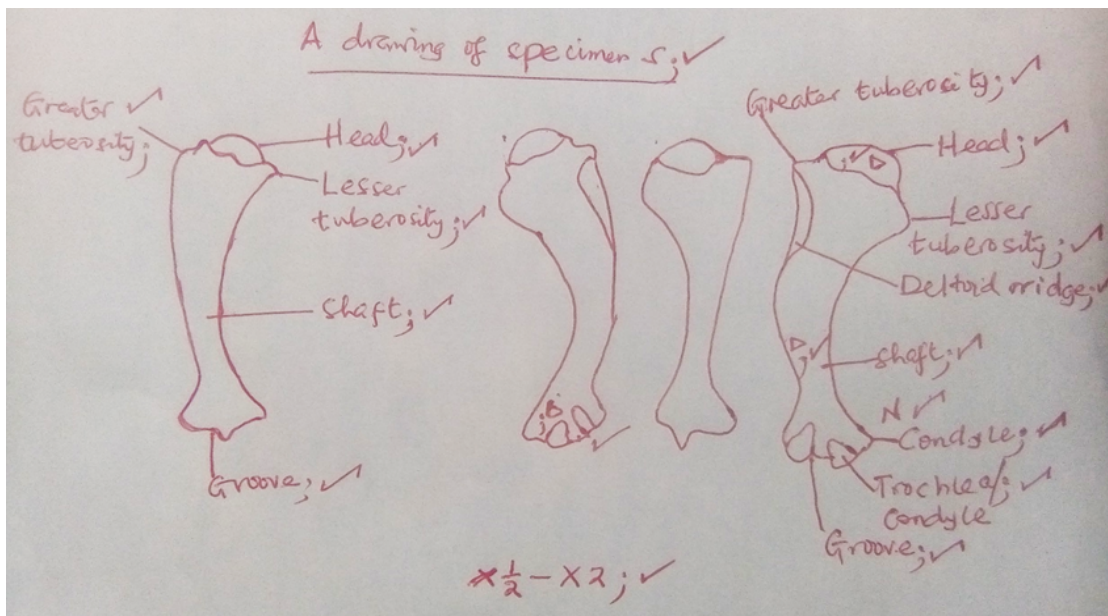 A drawing of specimen S; ✓
Greater ✓
tuberosity;
Head; ✓
Lesser
tuberosity; ✓
Shaft; ✓
Groove; ✓
Greater tuberosity; ✓
Head; ✓
; ✓ D
Lesser
tuberosity; ✓
Deltoid rridge; ✓
D; ✓
Shaft; ✓
N ✓
Condyle; ✓
Trochlea/; ✓
Condyle
Groove; ✓
×1/2 – ×2; ✓